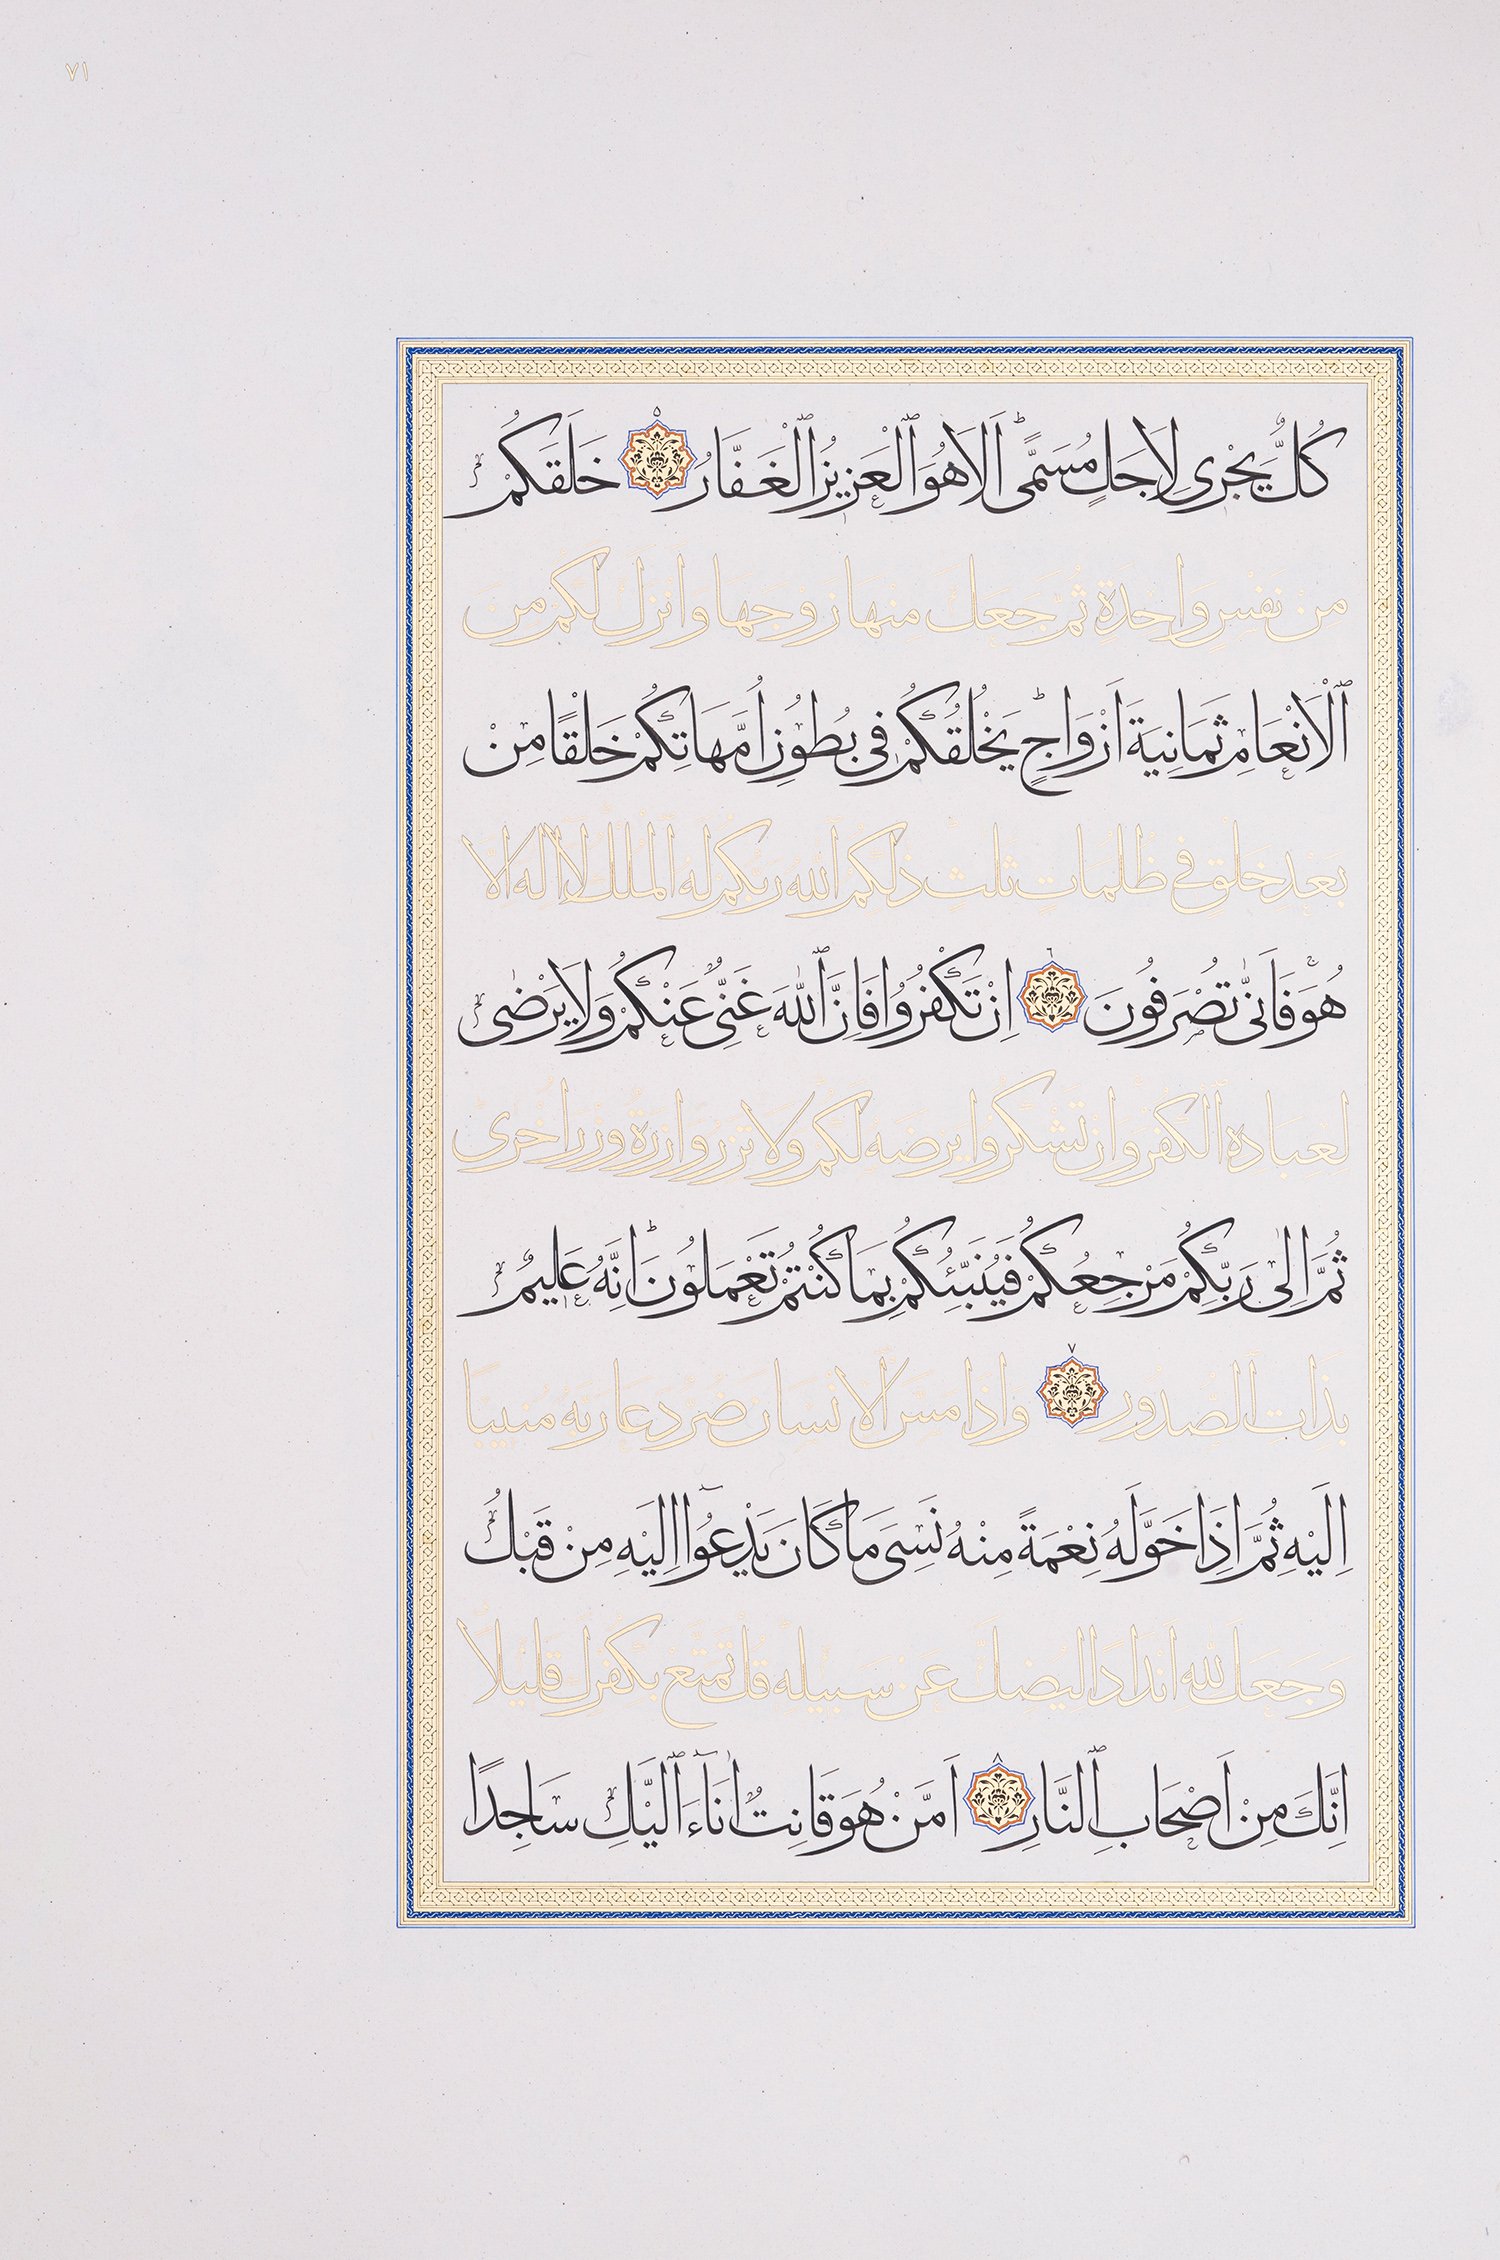 ٧١
كُلٌّ يَجْرِى لِاَجَلٍ مُسَمًّى اَلَا هُوَ ٱلْعَزِيزُ ٱلْغَفَّارُ ٥ خَلَقَكُمْ
مِنْ نَفْسٍ وَاحِدَةٍ ثُمَّ جَعَلَ مِنْهَا زَوْجَهَا وَاَنْزَلَ لَكُمْ مِنَ
ٱلْاَنْعَامِ ثَمَانِيَةَ اَزْوَاجٍ يَخْلُقُكُمْ فِى بُطُونِ اُمَّهَاتِكُمْ خَلْقًا مِنْ
بَعْدِ خَلْقٍ فِى ظُلُمَاتٍ ثَلٰثٍ ذٰلِكُمُ ٱللّٰهُ رَبُّكُمْ لَهُ ٱلْمُلْكُ لَٓا اِلٰهَ اِلَّا
هُوَ فَاَنّٰى تُصْرَفُونَ ٦ اِنْ تَكْفُرُوا فَاِنَّ ٱللّٰهَ غَنِىٌّ عَنْكُمْ وَلَا يَرْضٰى
لِعِبَادِهِ ٱلْكُفْرَ وَاِنْ تَشْكُرُوا يَرْضَهُ لَكُمْ وَلَا تَزِرُ وَازِرَةٌ وِزْرَ اُخْرٰى
ثُمَّ اِلٰى رَبِّكُمْ مَرْجِعُكُمْ فَيُنَبِّئُكُمْ بِمَا كُنْتُمْ تَعْمَلُونَ اِنَّهُ عَلِيمٌ
بِذَاتِ ٱلصُّدُورِ ٧ وَاِذَا مَسَّ ٱلْاِنْسَانَ ضُرٌّ دَعَا رَبَّهُ مُنِيبًا
اِلَيْهِ ثُمَّ اِذَا خَوَّلَهُ نِعْمَةً مِنْهُ نَسِىَ مَا كَانَ يَدْعُوٓا اِلَيْهِ مِنْ قَبْلُ
وَجَعَلَ لِلّٰهِ اَنْدَادًا لِيُضِلَّ عَنْ سَبِيلِهِ قُلْ تَمَتَّعْ بِكُفْرِكَ قَلِيلًا
اِنَّكَ مِنْ اَصْحَابِ ٱلنَّارِ ٨ اَمَّنْ هُوَ قَانِتٌ اٰنَٓاءَ ٱلَّيْلِ سَاجِدًا